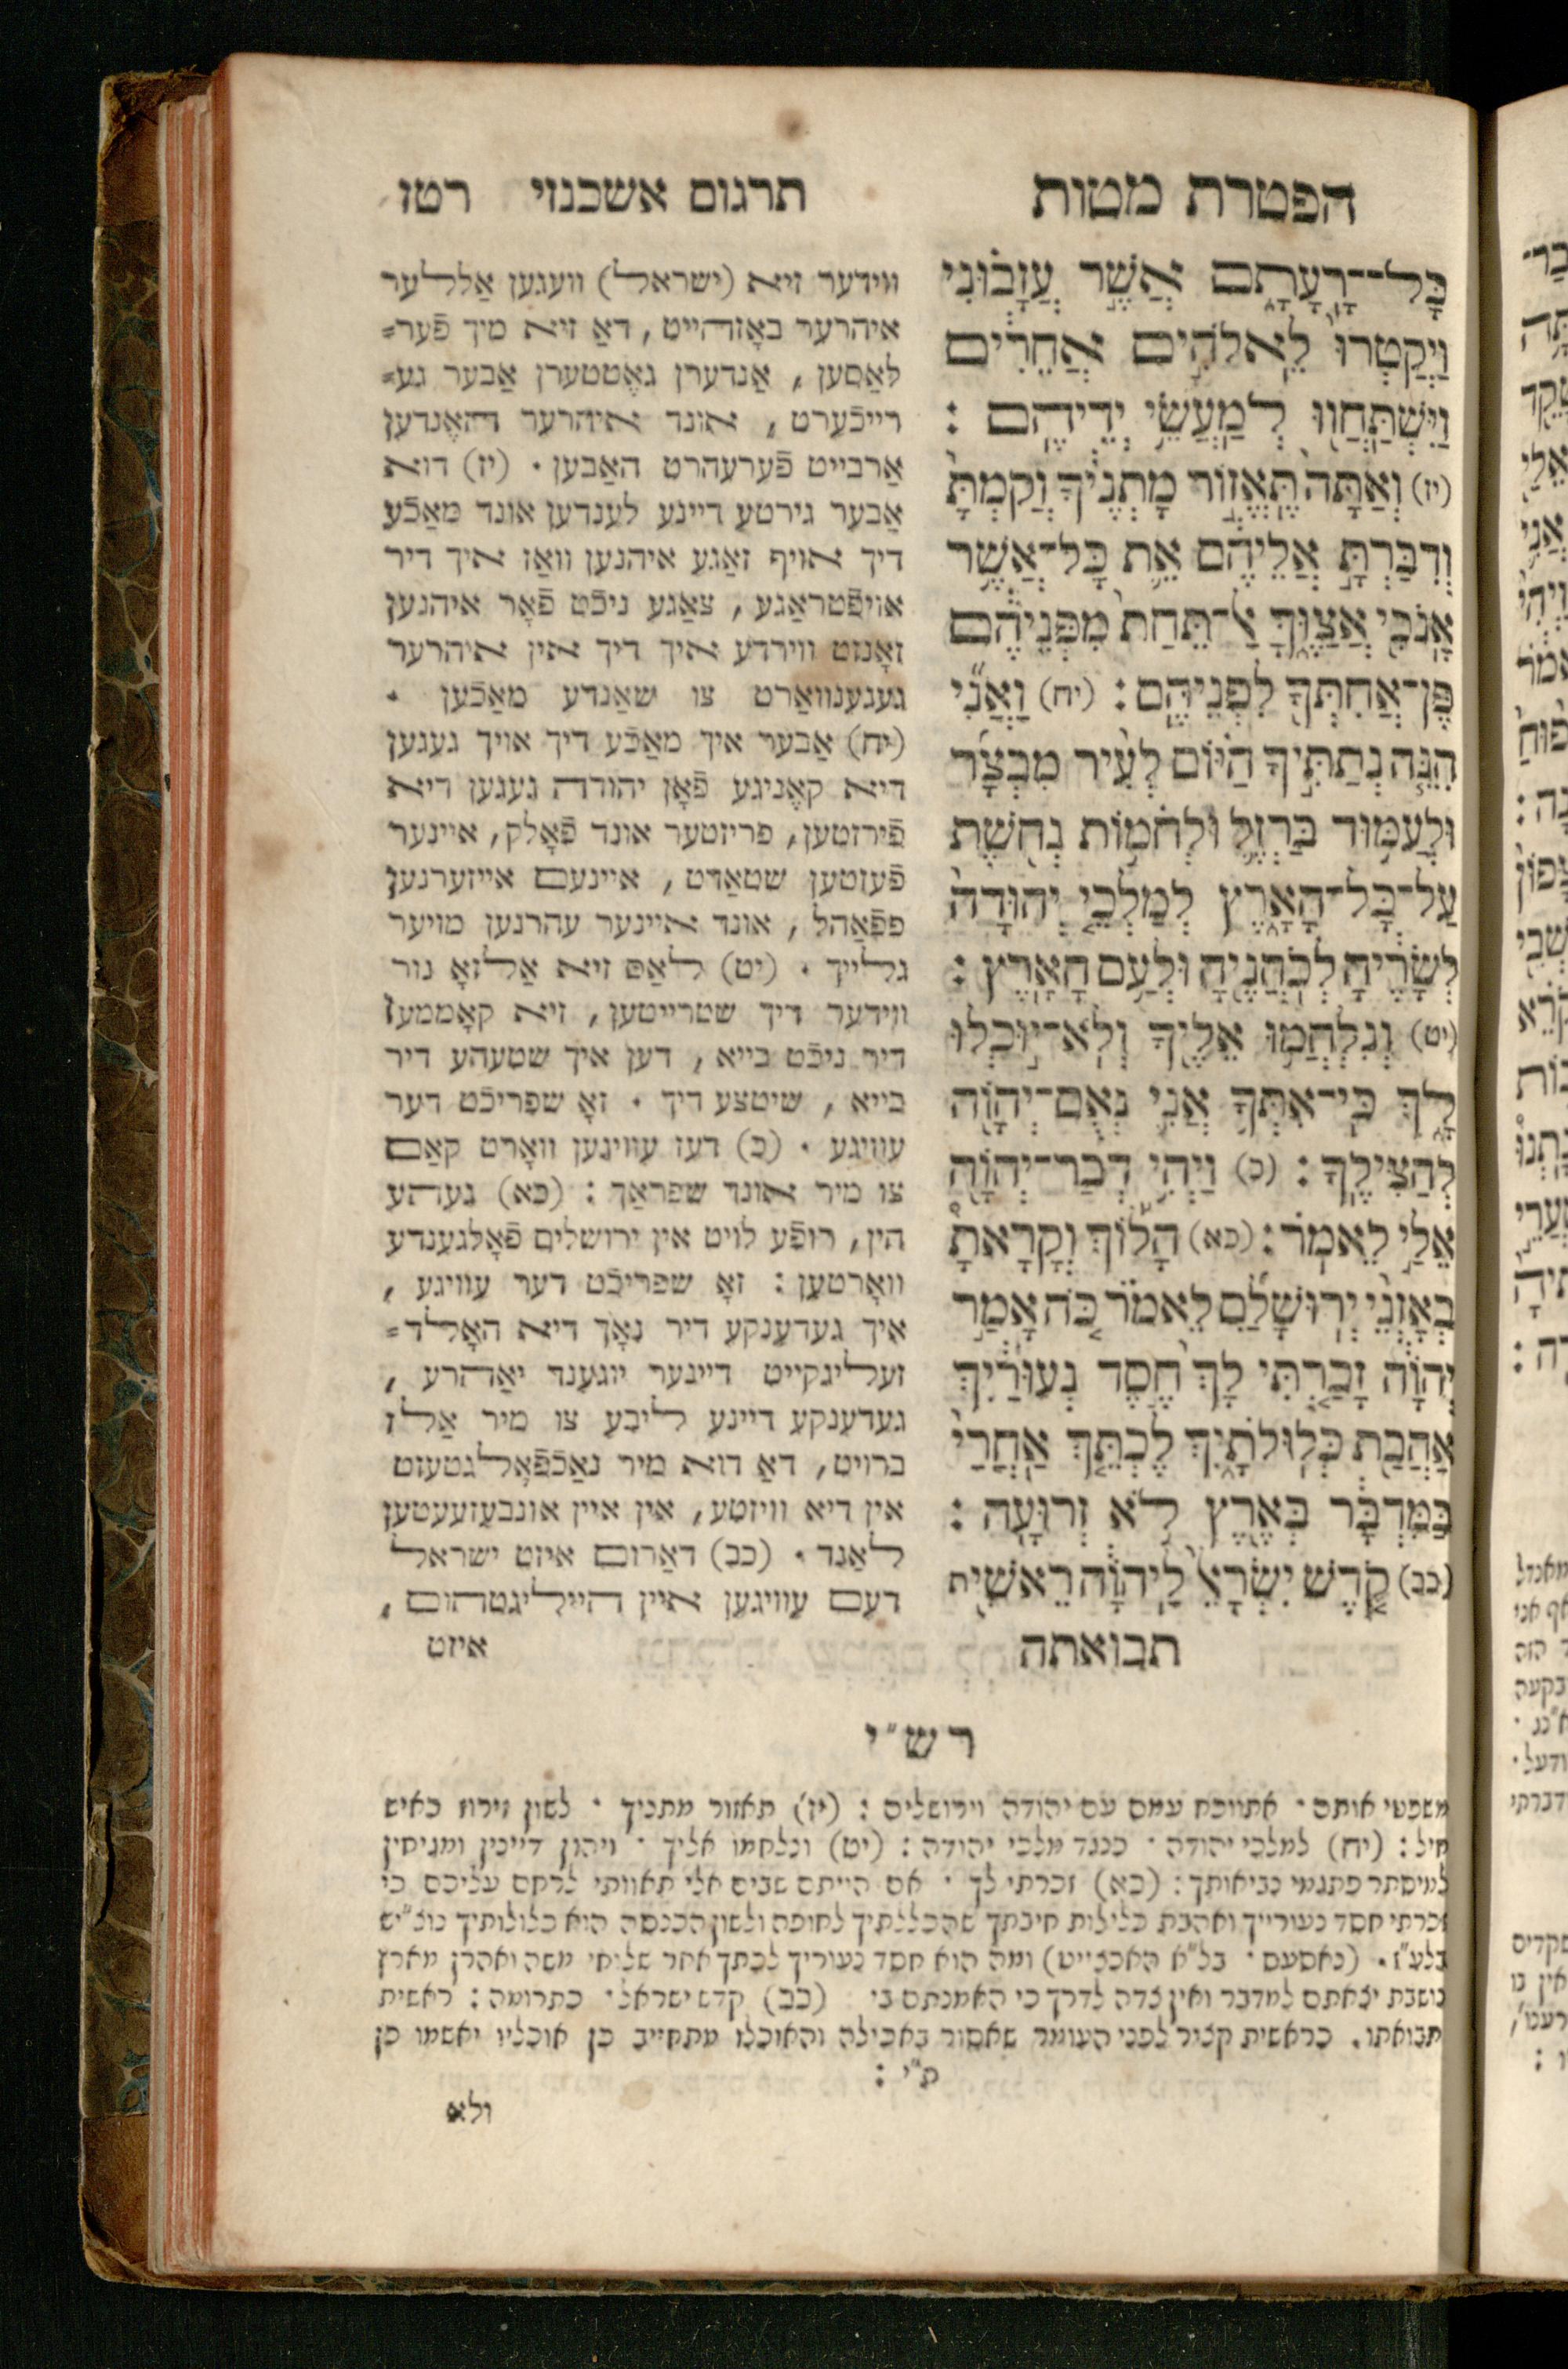 הפטרת מטות
תרגום אשכנזי רטז
כָּל־־רָֽעָתָ֑ם אֲשֶׁ֣ר עֲזָב֗וּנִי
וַֽיְקַטְּרוּ֙ לֵֽאלֹהִ֣ים אֲחֵרִ֔ים
וַיִּֽשְׁתַּחֲו֖וּ לְמַֽעֲשֵׂ֥י יְדֵיהֶֽם :
(יז) וְאַתָּה֙ תֶּאֱזֹ֣ור מָתְנֶ֔יךָ וְקַמְתָּ֙
וְדִבַּרְתָּ֣ אֲלֵיהֶ֔ם אֵ֛ת כָּל־אֲשֶׁ֥ר
אָֽנֹכִ֖י אֲצַוֶּ֑ךָּ אַל־תֵּחַת֙ מִפְּנֵיהֶ֔ם
פֶּן־אֲחִתְּךָ֖ לִפְנֵיהֶֽם : (יח) וַאֲנִ֞י
הִנֵּ֧ה נְתַתִּ֣יךָ הַיּ֗וֹם לְעִ֨יר מִבְצָ֜ר
וּלְעַמּ֥וּד בַּרְזֶ֛ל וּלְחֹמ֥וֹת נְחֹ֖שֶׁת
עַל־כָּל־הָאָ֑רֶץ לְמַלְכֵ֤י יְהוּדָה֙
לְשָׂרֶ֔יהָ לְכֹֽהֲנֶ֖יהָ וּלְעַ֥ם הָאָֽרֶץ :
(יט) וְנִלְחֲמ֥וּ אֵלֶ֖יךָ וְלֹא־י֣וּכְלוּ
לָ֑ךְ כִּֽי־אִתְּךָ֥ אֲנִ֛י נְאֻם־יְהוָ֖ה
לְהַצִּילֶֽךָ : (כ) וַיְהִ֥י דְבַר־יְהוָ֖ה
אֵלַ֥י לֵאמֹֽר : (כא) הָלֹ֡וךְ וְקָרָאתָ֩
בְאָזְנֵ֨י יְרֽוּשָׁלִַ֜ם לֵאמֹ֗ר כֹּ֚ה אָמַ֣ר
יְהוָ֔ה זָכַ֤רְתִּי לָךְ֙ חֶ֣סֶד נְעוּרַ֔יִךְ
אַהֲבַ֖ת כְּלֽוּלֹתָ֑יִךְ לֶכְתֵּ֤ךְ אַֽחֲרַי֙
בַּמִּדְבָּ֔ר בְּאֶ֖רֶץ לֹ֥א זְרוּעָֽה :
(כב) קֹ֤דֶשׁ יִשְׂרָאֵל֙ לַֽיהוָ֔ה רֵאשִׁ֖ית
תבואתה
ווידער זיא (ישראל) וועגען אַללער
איהרער באָזהייט, דאַ זיא מיך פֿער=
לאַסען, אַנדערן גאָטטערן אַבער גע=
רייכֿערט, אונד איהרער האָנדען
אַרבייט פֿערעהרט האַבען . (יז) דוא
אַבער גירטע דיינע לענדען אונד מאַכֿע
דיך אויף זאַגע איהנען וואַז איך דיר
אויפֿטראַגע, צאַגע ניכֿט פֿאָר איהנען
זאָנזט ווירדע איך דיך אין איהרער
געגענוואַרט צו שאַנדע מאַכֿען .
(יח) אַבער איך מאַכֿע דיך אויך געגען
דיא קאָניגע פֿאָן יהודה געגען דיא
פֿירזטען, פריזטער אונד פֿאָלק, איינער
פֿעזטען שטאַדט, איינעם אייזערנען
פפֿאַהל, אונד איינער עהרנען מויער
גלייך . (יט) לאַס זיא אַלזאָ נור
ווידער דיך שטרייטען, זיא קאָממען
דיר ניכֿט בייא, דען איך שטעהע דיר
בייא, שיטצע דיך . זאָ שפריכֿט דער
עוויגע . (כ) דעז עוויגען וואָרט קאַם
צו מיר אונד שפראַך : (כא) געהע
הין, רופֿע לויט אין ירושלים פֿאָלגענדע
וואָרטען : זאָ שפריכֿט דער עוויגע,
איך געדענקע דיר נאָך דיא האָלד=
זעליגקייט דיינער יוגענד יאַהרע,
געדענקע דיינע ליבע צו מיר אַלז
ברויט, דאַ דוא מיר נאַכֿפֿאָלגטעזט
אין דיא וויזטע, אין איין אונבעזעעטען
לאַנד . (כב) דאַרום איזט ישראל
דעם עוויגען איין הייליגטהום,
איזט
רש"י
משפטי אותם . אתווכח עמם עם יהודה וירושלים : (יז) תאזור מתניך . לשון זירוז כאיש
חיל : (יח) למלכי יהודה . כנגד מלכי יהודה : (יט) ונלחמו אליך . ויהון דיינין ומנחין
למיסתר פתגמי נביאותך : (כא) זכרתי לך . אם הייתם שבים אלי תאוותי לרחם עליכם כי
זכרתי חסד נעורייך ואהבת כלילות חיבתך שהכללתיך לחופה ולשון הכנסה הוא כלולותיך נוצ"יש
בלע"ז . (נאסעס . בל"א האכצייט) ומה הוא חסד נעוריך לכתך אחר שלוחי משה ואהרן מארץ
נושבת יצאתם למדבר ואין צדה לדרך כי האמנתם בי (כב) קדש ישראל . כתרומה : ראשית
תבואתו . כראשית קציר לפני העומר שאסור באכילה והאוכלו מתחייב כן אוכליו יאשמו כן
ת"י :
ולא